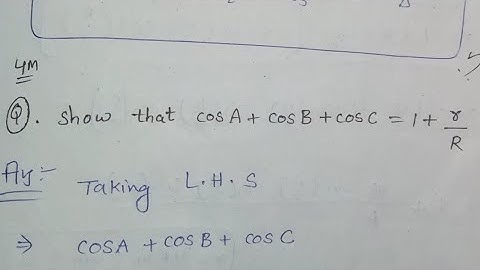 4M
Q. Show that cosA + cosB + cosC = 1 + r/R
Taking L.H.S
⇒ cosA + cosB + cosC